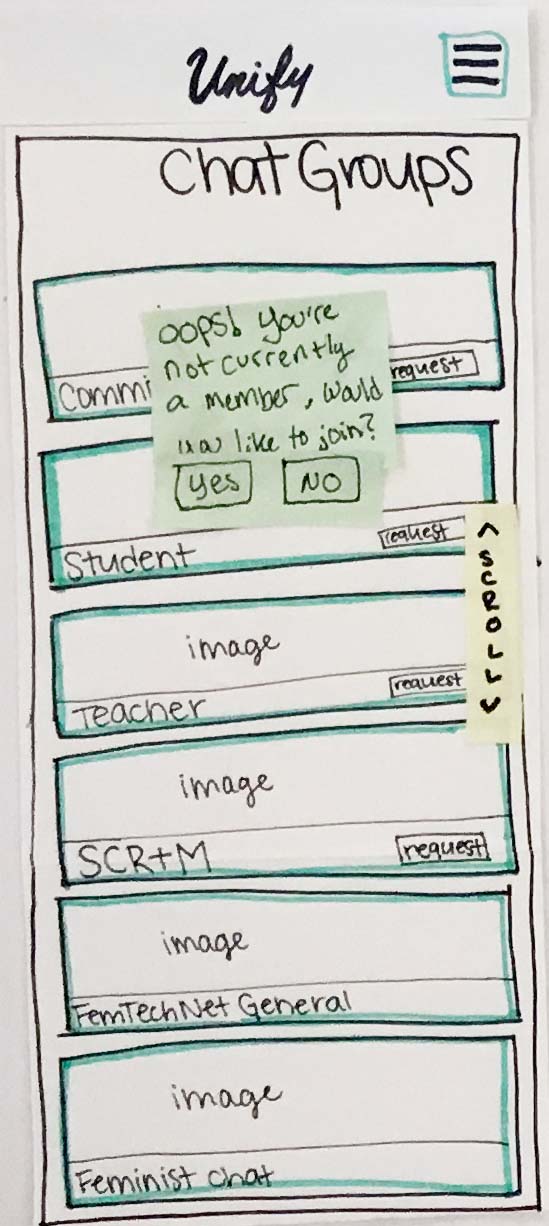 Unify
Chat Groups
oops! you're
not currently
a member, would
you like to join?
Yes NO
Commi
request
Student
request
SCROLL
image
Teacher
request
image
SCR+M
request
image
FemTechNet General
image
Feminist chat